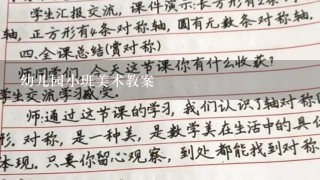 学生汇报交流,课件演示:长方形有2条
轴,正方形有4条对称轴,圆有无数条对称轴.
四.全课总结(赏对称)
今天这节课你有什么收获?
幼儿园小班美术教案
学生交流学习感受.
师:通过这节课的学习,我们认识了轴对称
形.对称,是一种美,是数学美在生活中的具
体现.只要你留心观察,到处都能找到对称